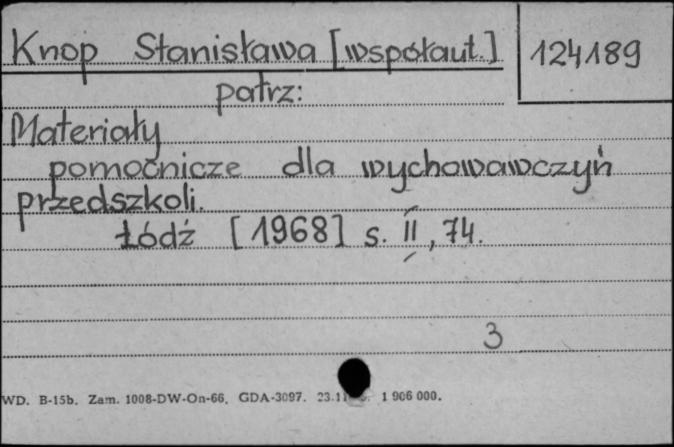 Knop Stanisława [współaut.] 124189
patrz:
Materiały
pomocnicze dla wychowawczyń
przedszkoli.
Łódź [1968] s. II, 74.
3
WD. B-15b. Zam. 1008-DW-On-66. GDA-3097. 1 906 000.